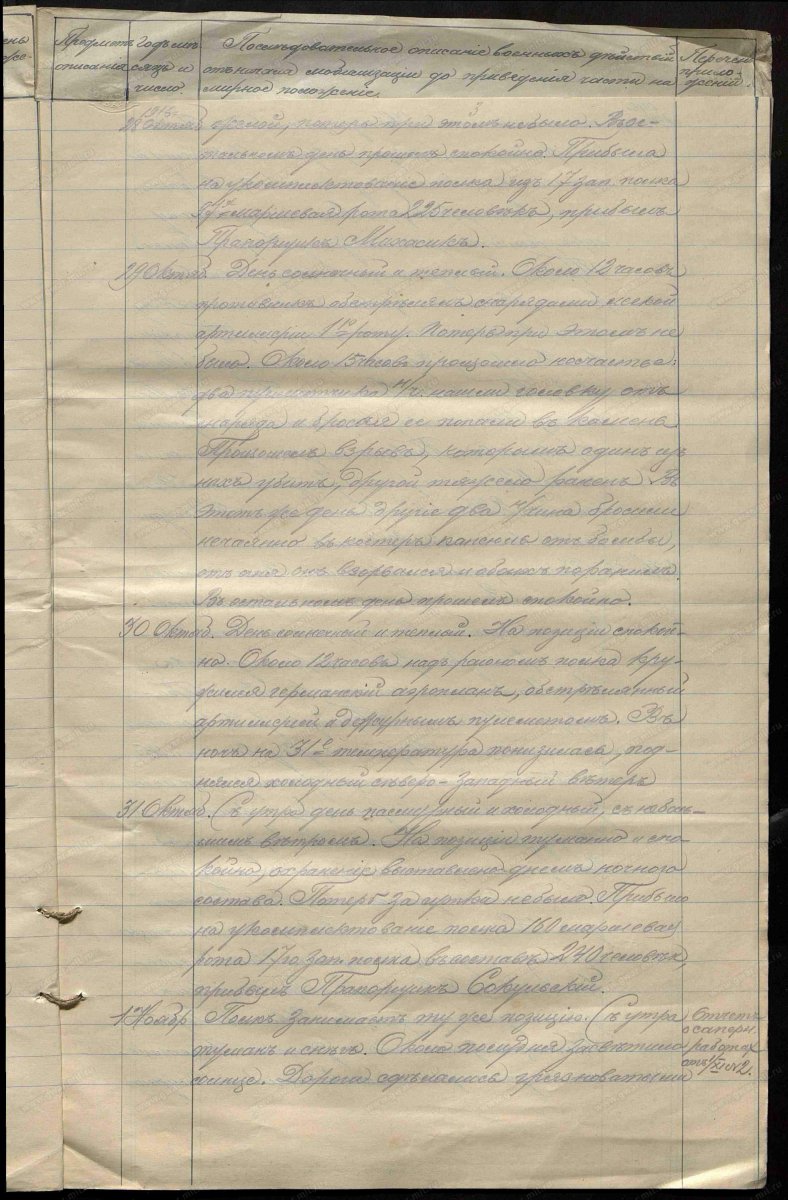 Предметъ описанія
Годъ мѣсяцъ и число
Послѣдовательное описаніе военныхъ дѣйствій
отъ начала мобилизаціи до приведенія части на
мирное положеніе.
Перечень приложеній.
28 Октяб. потерь при этомъ не было. Въ ос-
тальномъ день прошелъ спокойно. Прибыла
на укомплектованіе полка изъ 17 зап. полка
маршевая рота 225 человѣкъ, прибылъ
Прапорщикъ Михасикъ.
29 Октяб. День солнечный и теплый. Около 12 часовъ
противникъ обстрѣлялъ снарядами легкой
артиллеріи 1ю роту. Потерь при этомъ не
было. Около 15 часовъ произошло несчастье:
два н/ч. нашли головку отъ
снаряда и бросая ее попали въ камень
Произошелъ взрывъ, которымъ одинъ изъ
нихъ убитъ, другой тяжело раненъ. Въ
этотъ же день другіе два н/чина бросили
нечаянно въ костеръ капсюль отъ бомбы,
отъ огня онъ взорвался и обоихъ поранилъ.
Въ остальномъ день прошелъ спокойно.
30 Октяб. День солнечный и теплый. На позиціи спокой-
но. Около 12 часовъ надъ раіономъ полка кру-
жился германскій аэропланъ, обстрѣлянный
артиллеріей и дежурнымъ пулеметомъ. Въ
ночь на 31е температура понизилась, под-
нялся холодный сѣверо-западный вѣтеръ
31 Октяб. Съ утра день пасмурный и холодный, съ неболь-
шимъ вѣтромъ. На позиціи туманно и спо-
койно, охраненіе выставлено днемъ ночного
состава. Потерь за сутки не было. Прибыла
на укомплектованіе полка 160 маршевая
рота 17го зап. полка въ составѣ 240 человѣкъ,
прибылъ Прапорщикъ Сокульскій.
1 Ноябр. Полкъ занимаетъ ту же позицію. Съ утра
туманъ и снѣгъ. Около полудня засвѣтило
солнце. Дороги сдѣлались грязноватыми
Отчетъ
о саперн.
работахъ
отъ 1/XI №2.